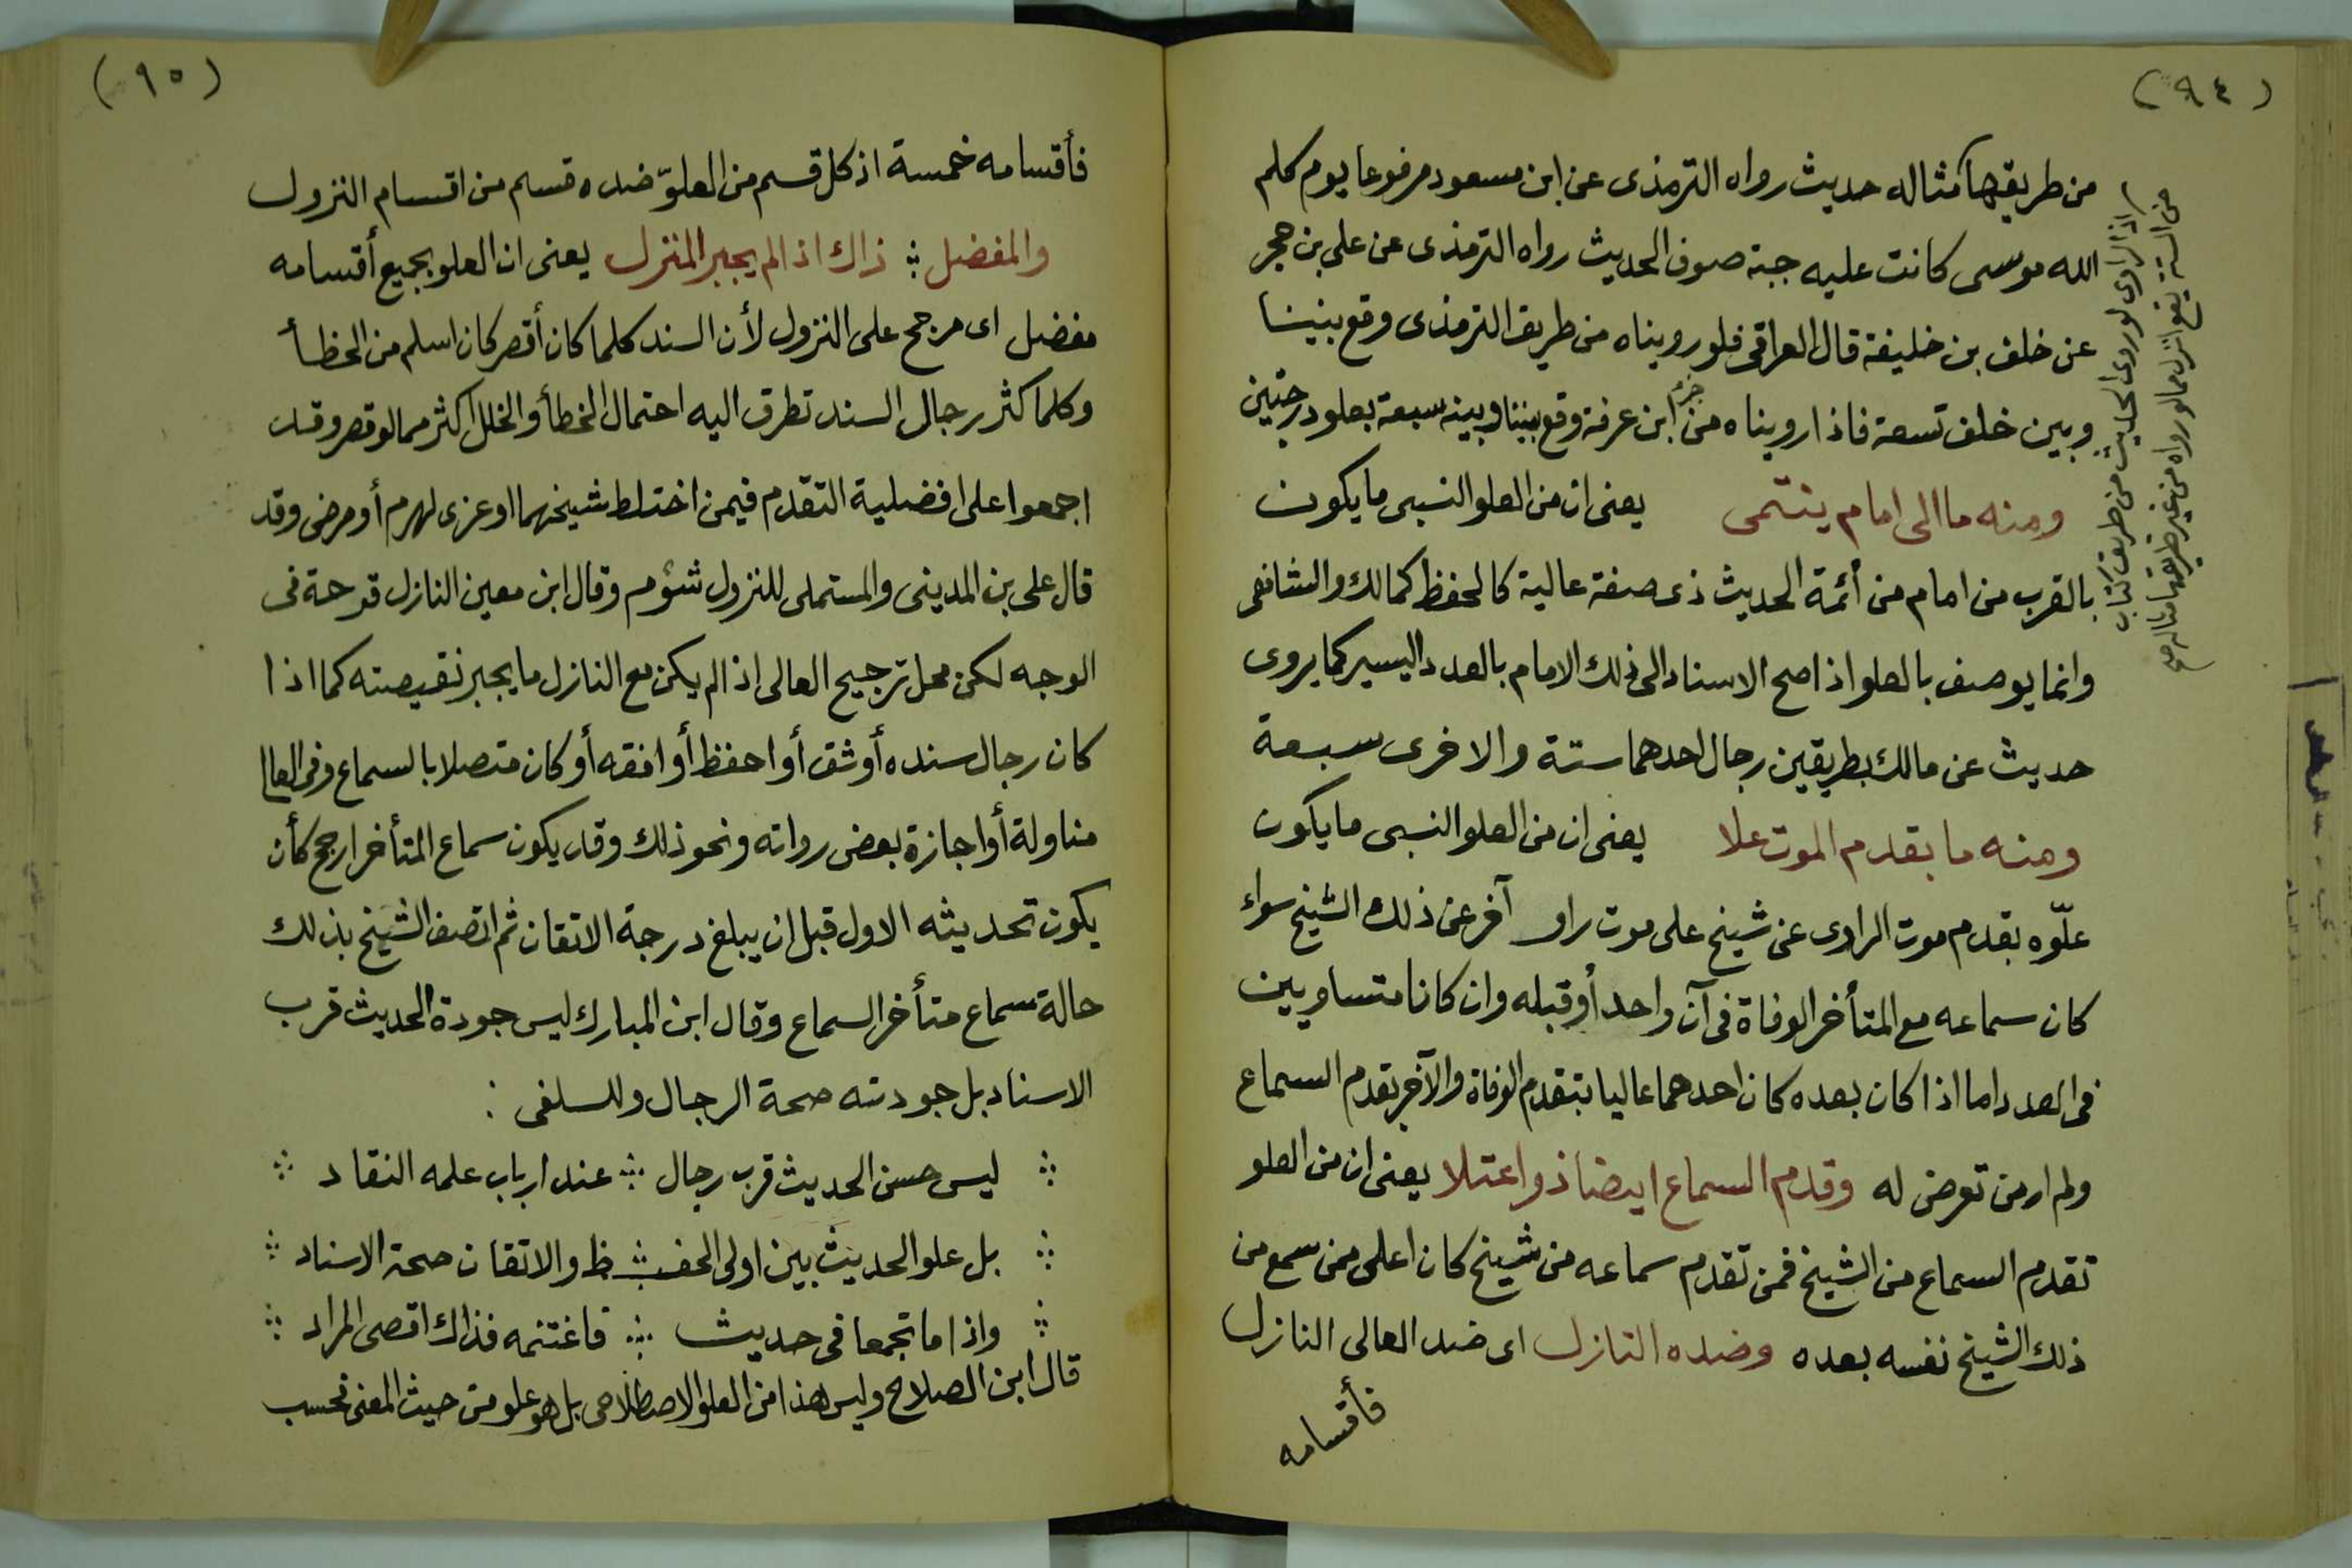 (٩٤)
من طريقها مثاله حديث رواه الترمذى عن ابن مسعود مرفوعا يوم كلم
الله موسى كانت عليه جبة صوف الحديث رواه الترمذى عن على بن حجر
عن خلف بن خليفة قال العراقى فلو رويناه من طريق الترمذى وقع بيننا
وبين خلف تسعة فاذا رويناه من جزء ابن عرفة وقع بيننا وبينه سبعة بعلو درجتين
ومنه ما الى امام ينتمى يعنى ان من العلو النسبى ما يكون
بالقرب من امام من أئمة الحديث ذى صفة عالية كالحفظ كمالك والشافعى
وانما يوصف بالعلو اذا صح الاسناد الى ذلك الامام بالعدد اليسير كما يروى
حديث عن مالك بطريقين رجال احدهما ستة والاخرى سبعة
ومنه ما بقدم الموت علا يعنى ان من العلو النسبى ما يكون
علوّه بقدم موت الراوى عن شيخ على موت راو آخر عن ذلك الشيخ سواء
كان سماعه مع المتأخر الوفاة فى آن واحد أو قبله وان كانا متساويين
فى العدد اما اذا كان بعده كان احدهما عاليا بتقدم الوفاة والآخر بقدم السماع
ولم ار من تعرض له وقدم السماع ايضا ذو اعتلا يعنى ان من العلو
تقدم السماع من الشيخ فمن تقدم سماعه من شيخ كان اعلى ممن سمع من
ذلك الشيخ نفسه بعده وضده النازل اى ضد العالى النازل
فأقسامه
اذ الراوى لو روى الحديث من طريق كتاب
من الستة يقع انزل مما لو رواه من غير طريقها مثاله صح
(٩٥)
فأقسامه خمسة اذ كل قسم من العلوّ ضده قسم من اقسام النزول
والمفضل ؞ ذاك اذا لم يجبر المنزل يعنى ان العلو بجميع أقسامه
مفضل اى مرجح على النزول لأن السند كلما كان أقصر كان اسلم من الخطأ
وكلما كثر رجال السند تطرق اليه احتمال الخطأ والخلل اكثر مما لو قصر وقد
اجمعوا على افضلية التقدم فيمن اختلط شيخهما او عزى لهرم أو مرض وقد
قال على بن المدينى والمستملى للنزول شؤم وقال ابن معين النازل قرحة فى
الوجه لكن محل ترجيح العالى اذا لم يكن مع النازل ما يجبر نقيصته كما اذا
كان رجال سنده أوثق أو احفظ أو افقه أو كان متصلا بالسماع وفى العالى
مناولة أو اجازة بعض رواته ونحو ذلك وقد يكون سماع المتأخر ارجح كأن
يكون تحديثه الاول قبل ان يبلغ درجة الاتقان ثم اتصف الشيخ بذلك
حالة سماع متأخر السماع وقال ابن المبارك ليس جودة الحديث قرب
الاسناد بل جودته صحة الرجال وللسلفى :
؞ ليس حسن الحديث قرب رجال ؞ عند ارباب علمه النقاد ؞
؞ بل علو الحديث بين اولى الحفـ ؞ ـظ والاتقان صحة الاسناد ؞
؞ واذا ما تجمعا فى حديث ؞ فاغتنمه فذاك اقصى المراد ؞
قال ابن الصلاح وليس هذا من العلو الاصطلاحى بل هو علو من حيث المعنى فحسب